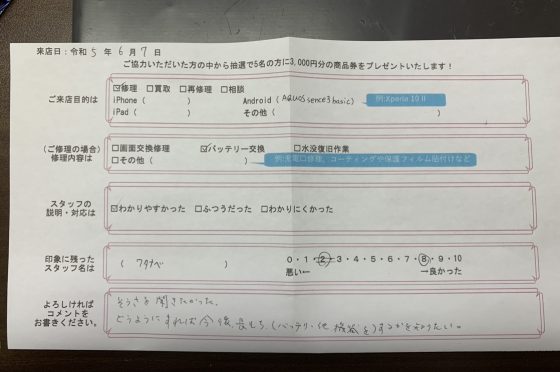 来店日：令和 5 年 6 月 7 日
ご協力いただいた方の中から抽選で5名の方に3,000円分の商品券をプレゼントいたします！
ご来店目的は
☑修理 □買取 □再修理 □相談
iPhone（ ） Android（AQUOS sence3 basic） 例:Xperia 10 II
iPad（ ） その他（ ）
（ご修理の場合）
修理内容は
□画面交換修理 ☑バッテリー交換 □水没復旧作業
□その他（ ） 例:充電口修理、コーティングや保護フィルム貼付けなど
スタッフの
説明・対応は
☑わかりやすかった □ふつうだった □わかりにくかった
印象に残った
スタッフ名は
（ ワタナベ ）
0・1・2・3・4・5・6・7・8・9・10
悪い← →良かった
よろしければ
コメントを
お書きください。
そうさを聞きたかった。
どうようにすれば今後、長もち、(バッテリー・他 機器を)するかを知りたい。